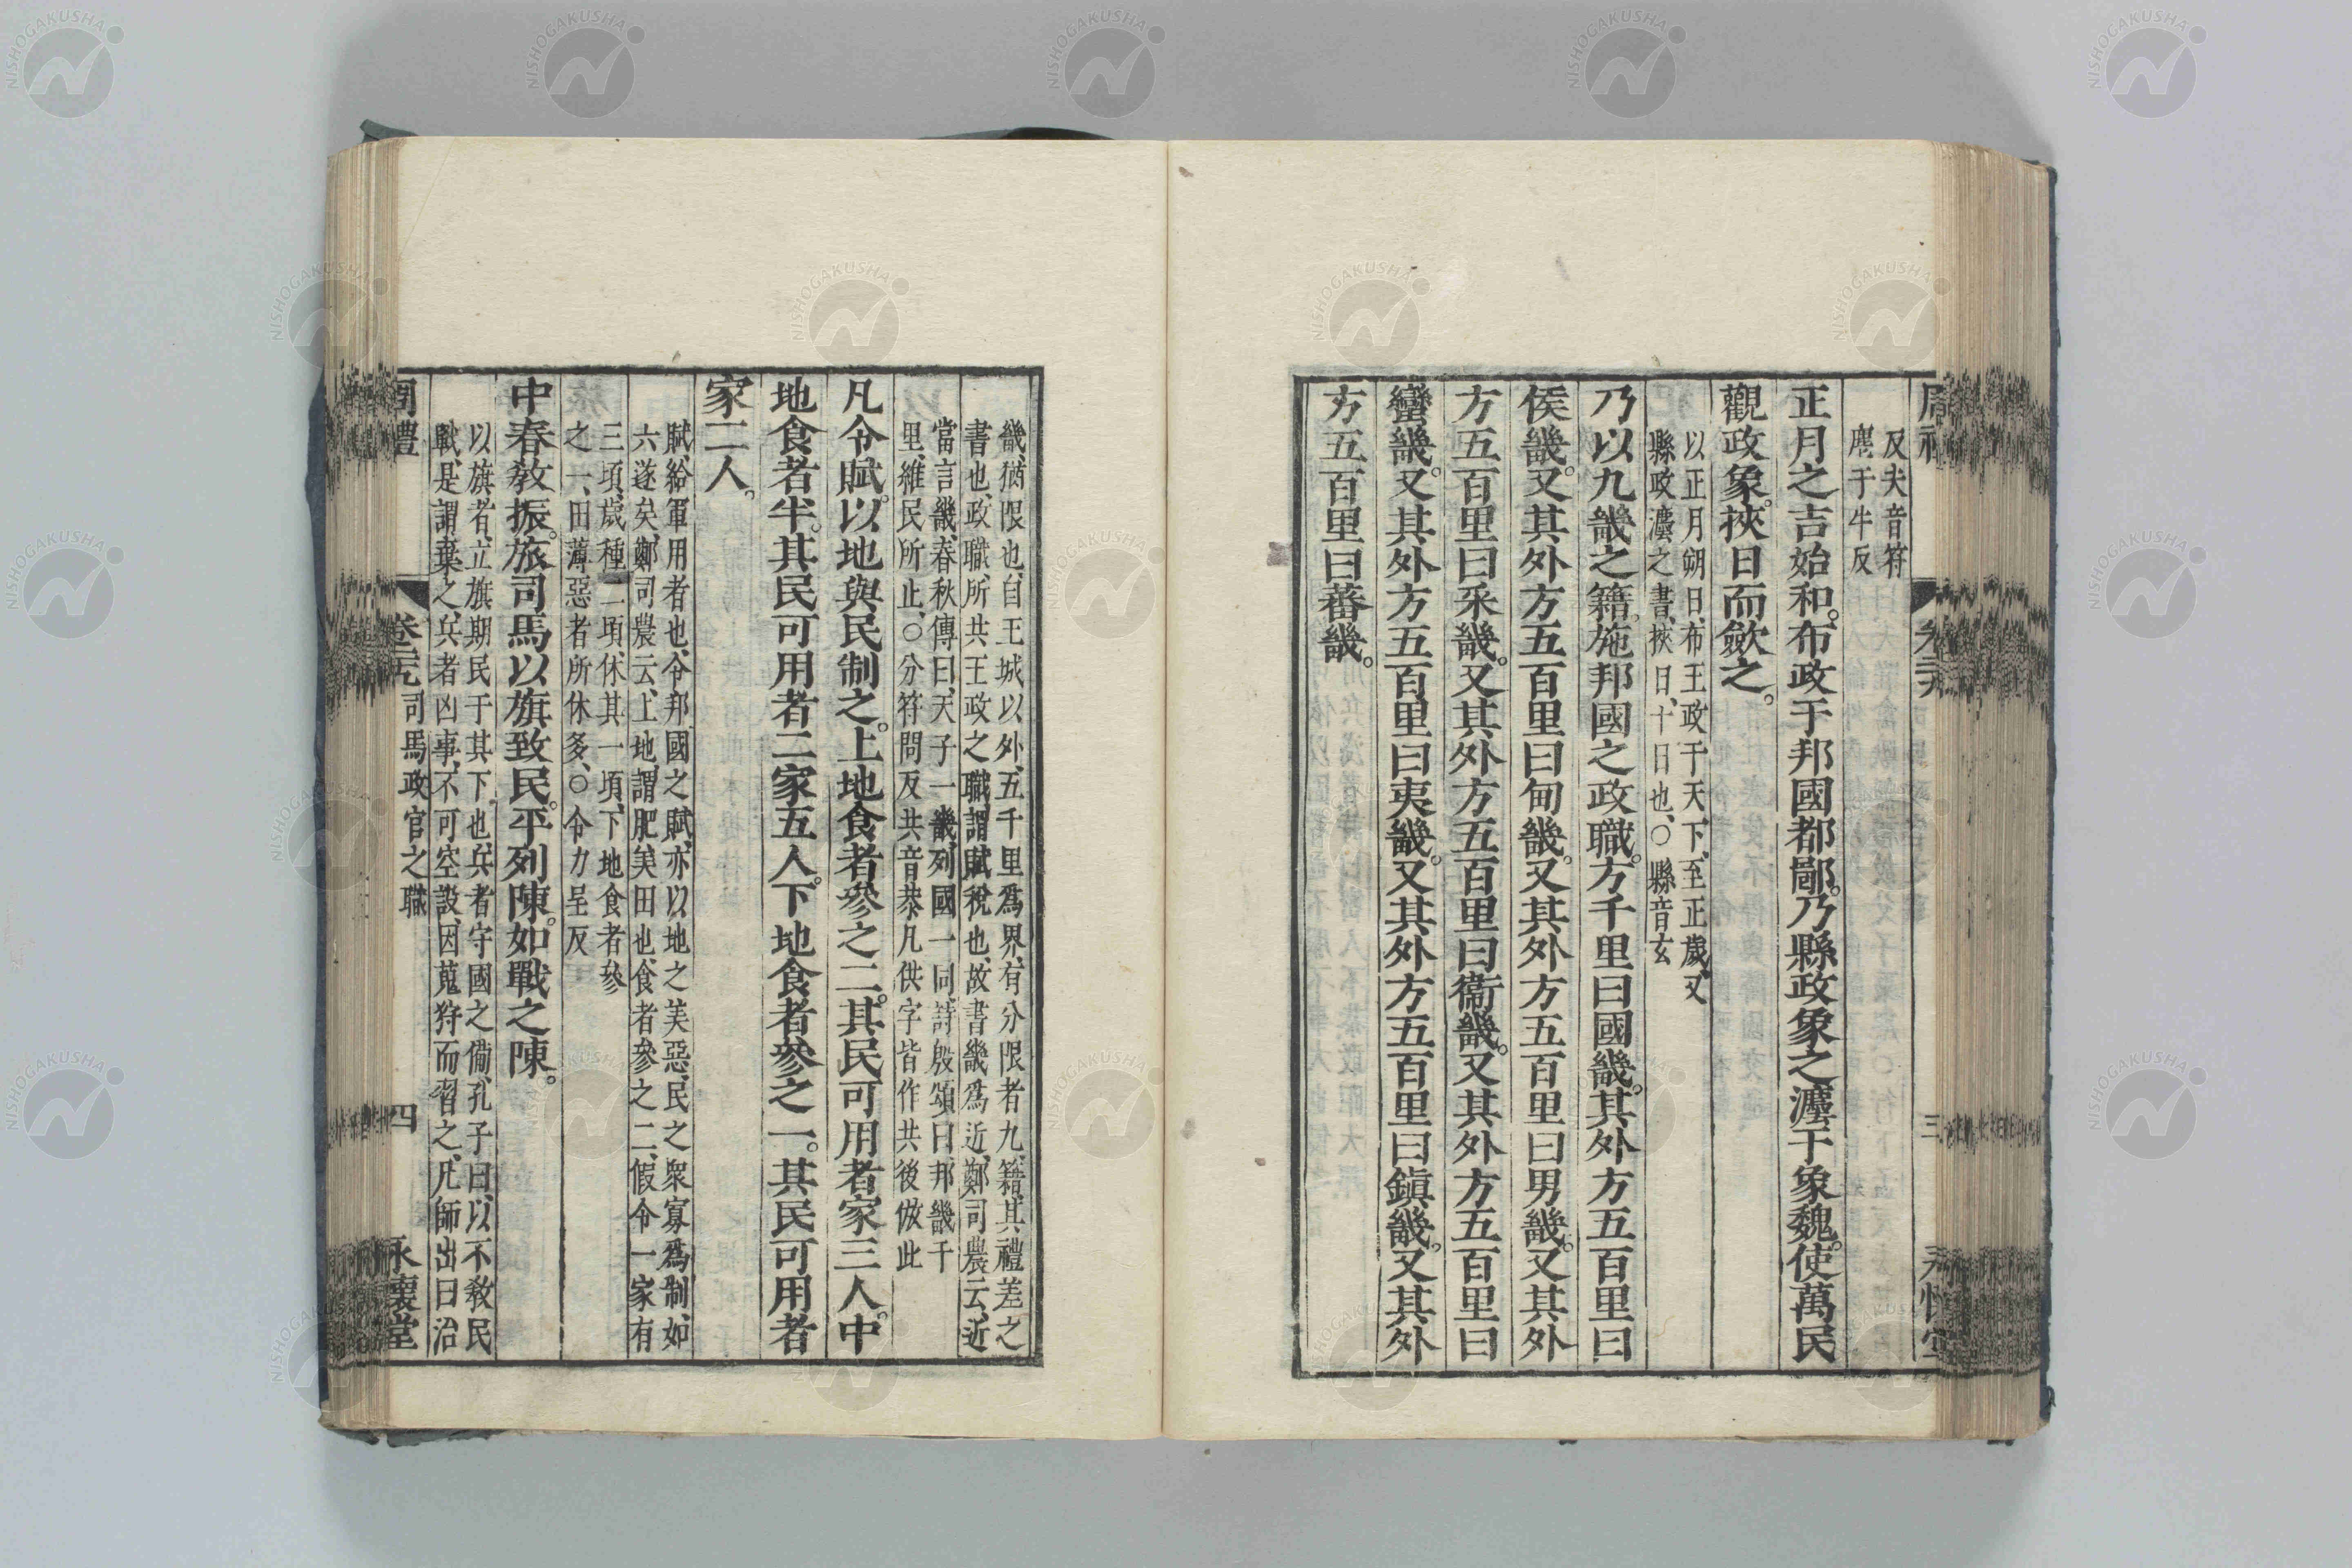 反夫音符
塵于牛反
正月之吉始和。布政于邦國都鄙。乃縣政象之灋于象魏。使萬民
觀政象。挾日而斂之。
以正月朔日、布王政于天下、至正歲、又
縣政灋之書、挾日、十日也、○縣音玄
乃以九畿之籍。施邦國之政職。方千里曰國畿。其外方五百里曰
侯畿。又其外方五百里曰甸畿。又其外方五百里曰男畿。又其外
方五百里曰采畿。又其外方五百里曰衞畿。又其外方五百里曰
蠻畿。又其外方五百里曰夷畿。又其外方五百里曰鎮畿。又其外
方五百里曰蕃畿。
畿、猶限也、自王城以外、五千里爲界、有分限者九、籍、其禮差之
書也、政職、所共王政之職、謂賦稅也、故書畿爲近、鄭司農云、近
當言畿、春秋傳曰、天子一畿、列國一同、詩殷頌曰、邦畿千
里、維民所止、○分符問反共音恭凡供字皆作共後倣此
凡令賦。以地與民制之。上地食者參之二。其民可用者家三人。中
地食者半。其民可用者二家五人。下地食者參之一。其民可用者
家二人。
賦、給軍用者也、令邦國之賦、亦以地之美惡、民之衆寡爲制、如
六遂矣、鄭司農云、上地、謂肥美田也、食者參之二、假令一家有
三頃、歲種二頃、休其一頃、下地食者參
之一、田薄惡者所休多、○令力呈反
中春敎振。旅司馬以旗致民。平列陳。如戰之陳。
以旗者、立旗期民于其下也、兵者守國之備、孔子曰、以不敎民
戰、是謂棄之、兵者凶事、不可空設、因蒐狩而習之、凡師出曰治
周禮 卷二九 司馬政官之職 四 永懷堂